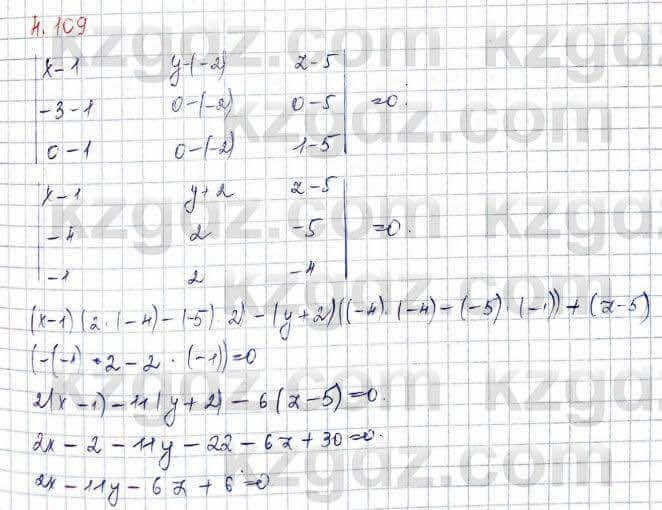 4.109
|x-1 y-(-2) z-5|
|-3-1 0-(-2) 0-5| =0.
|0-1 0-(-2) 1-5|
|x-1 y+2 z-5|
|-4 2 -5| =0.
|-1 2 -4|
(x-1)(2·(-4)-(-5)·2)-(y+2)((-4)·(-4)-(-5)·(-1))+(z-5)
(-(-1)·2-2·(-1))=0
2(x-1)-11(y+2)-6(z-5)=0.
2x-2-11y-22-6z+30=0.
2x-11y-6z+6=0
kzgdz.com